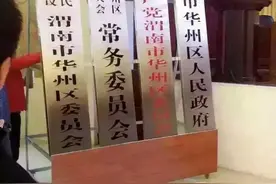 市华州区人民政府
产党渭南市华州区委
州区
人会
常务委员会
民
议
渭南市华州区委员会